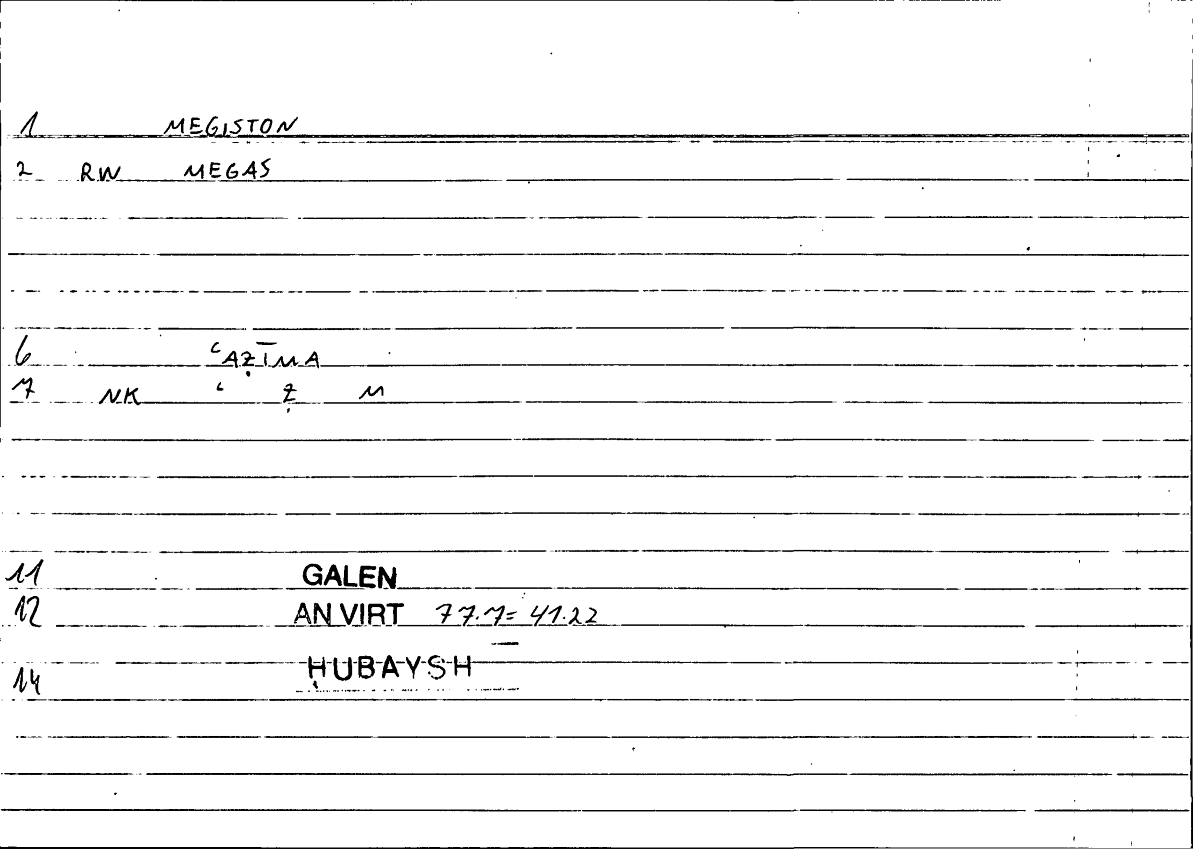 1 MEGISTON
2 RW MEGAS
6 ʿAẒĪMA
7 NK ʿ Ẓ M
11 GALEN
12 AN VIRT 77.7= 41.22
14 ḤUBAYSH